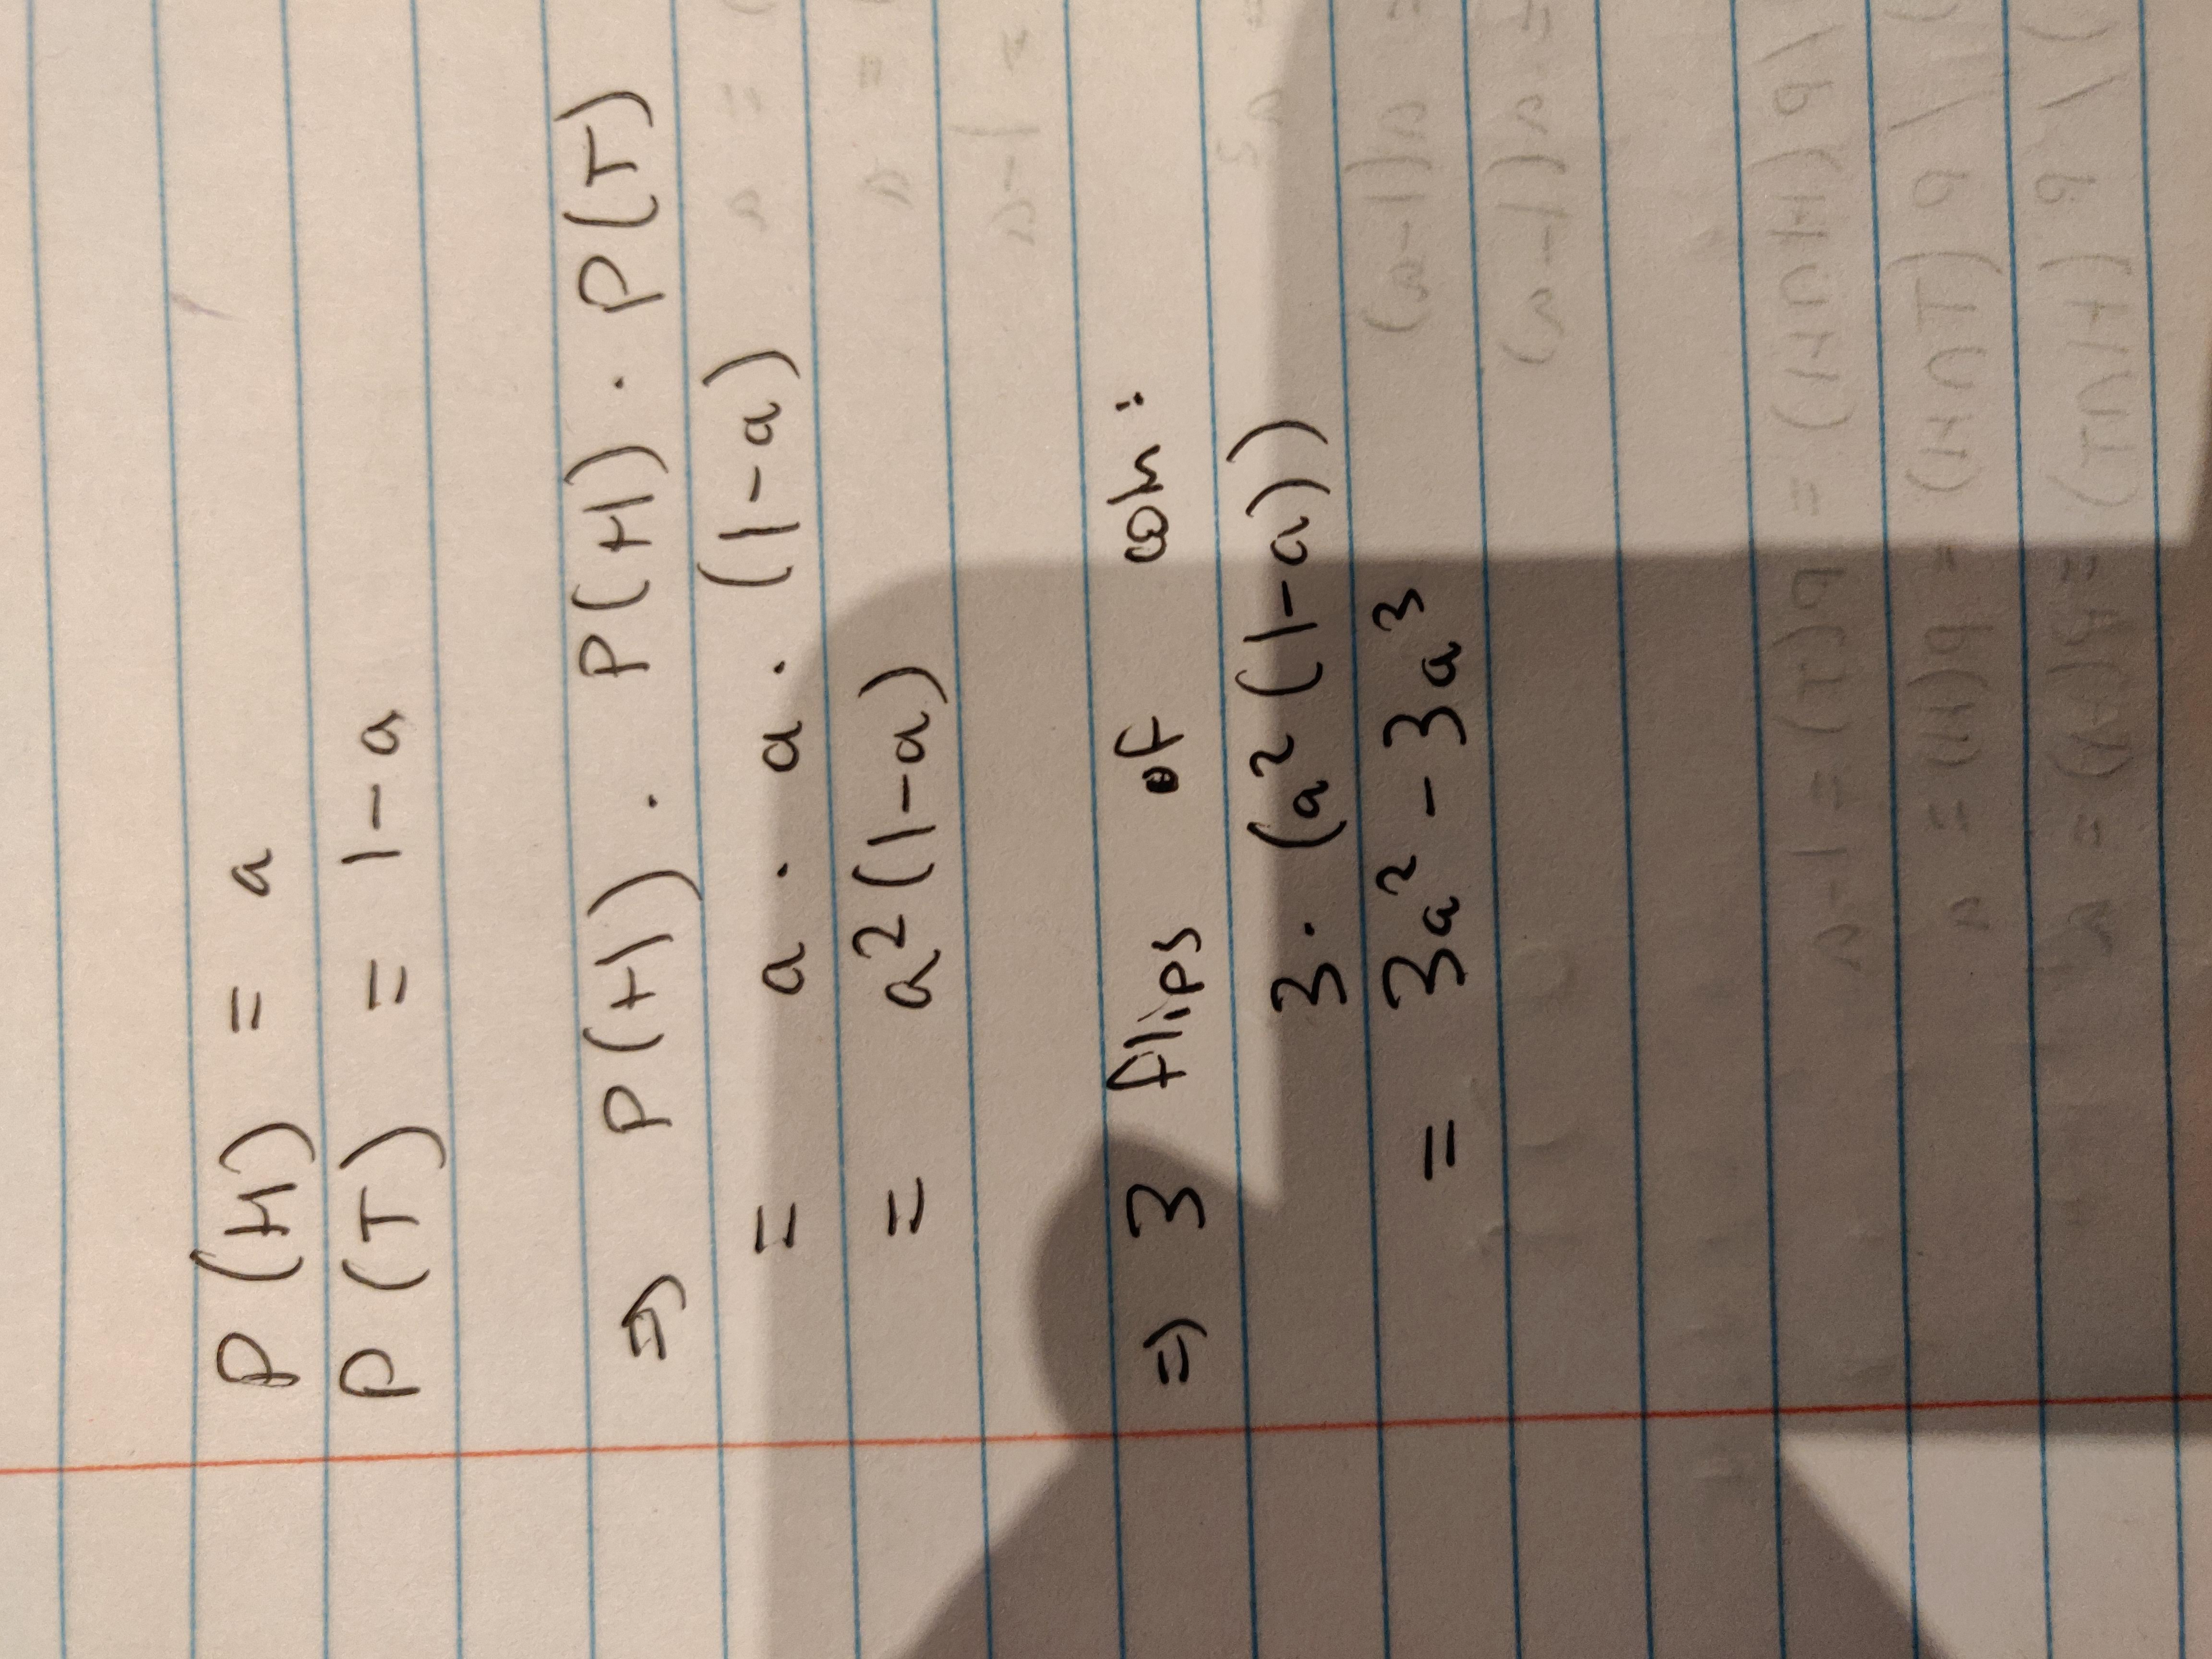 P(H) = a
P(T) = 1-a
⇒ P(H) . P(H) . P(T)
= a . a . (1-a)
= a²(1-a)
⇒ 3 flips of coin :
3 . (a²(1-a))
= 3a² - 3a³